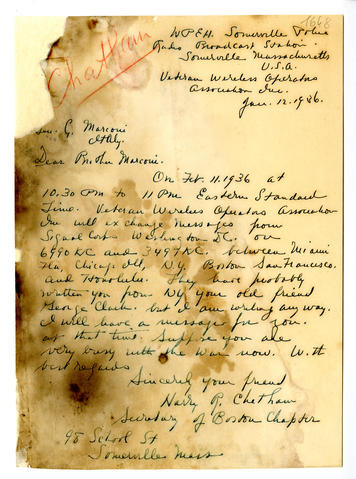 1668
Chatham
WPEH. Somerville Police
Radio Broadcast Station.
Somerville Massachusetts
U.S.A.
Veteran Wireless Operators
Association Inc.
Jan. 12. 1936.
Sen. G. Marconi
Italy.
Dear Brother Marconi.
On Feb. 11. 1936 at
10.30 PM to 11 PM Eastern Standard
Time. Veteran Wireless Operators Association
Inc will exchange messages from
Signal Corps Washington DC. on
6990 KC and 3497 KC. between Miami
Fla, Chicago Ill, N.Y. Boston San Francisco.
and Honolulu. They have probably
written you from NY your old friend
George Clark. but I am writing anyway.
I will have a message for you.
at that time. Suppose you are
very busy with the War now. With
best regards
Sincerely your friend
Harry R. Chetham
Secretary of Boston Chapter
98 School St
Somerville Mass